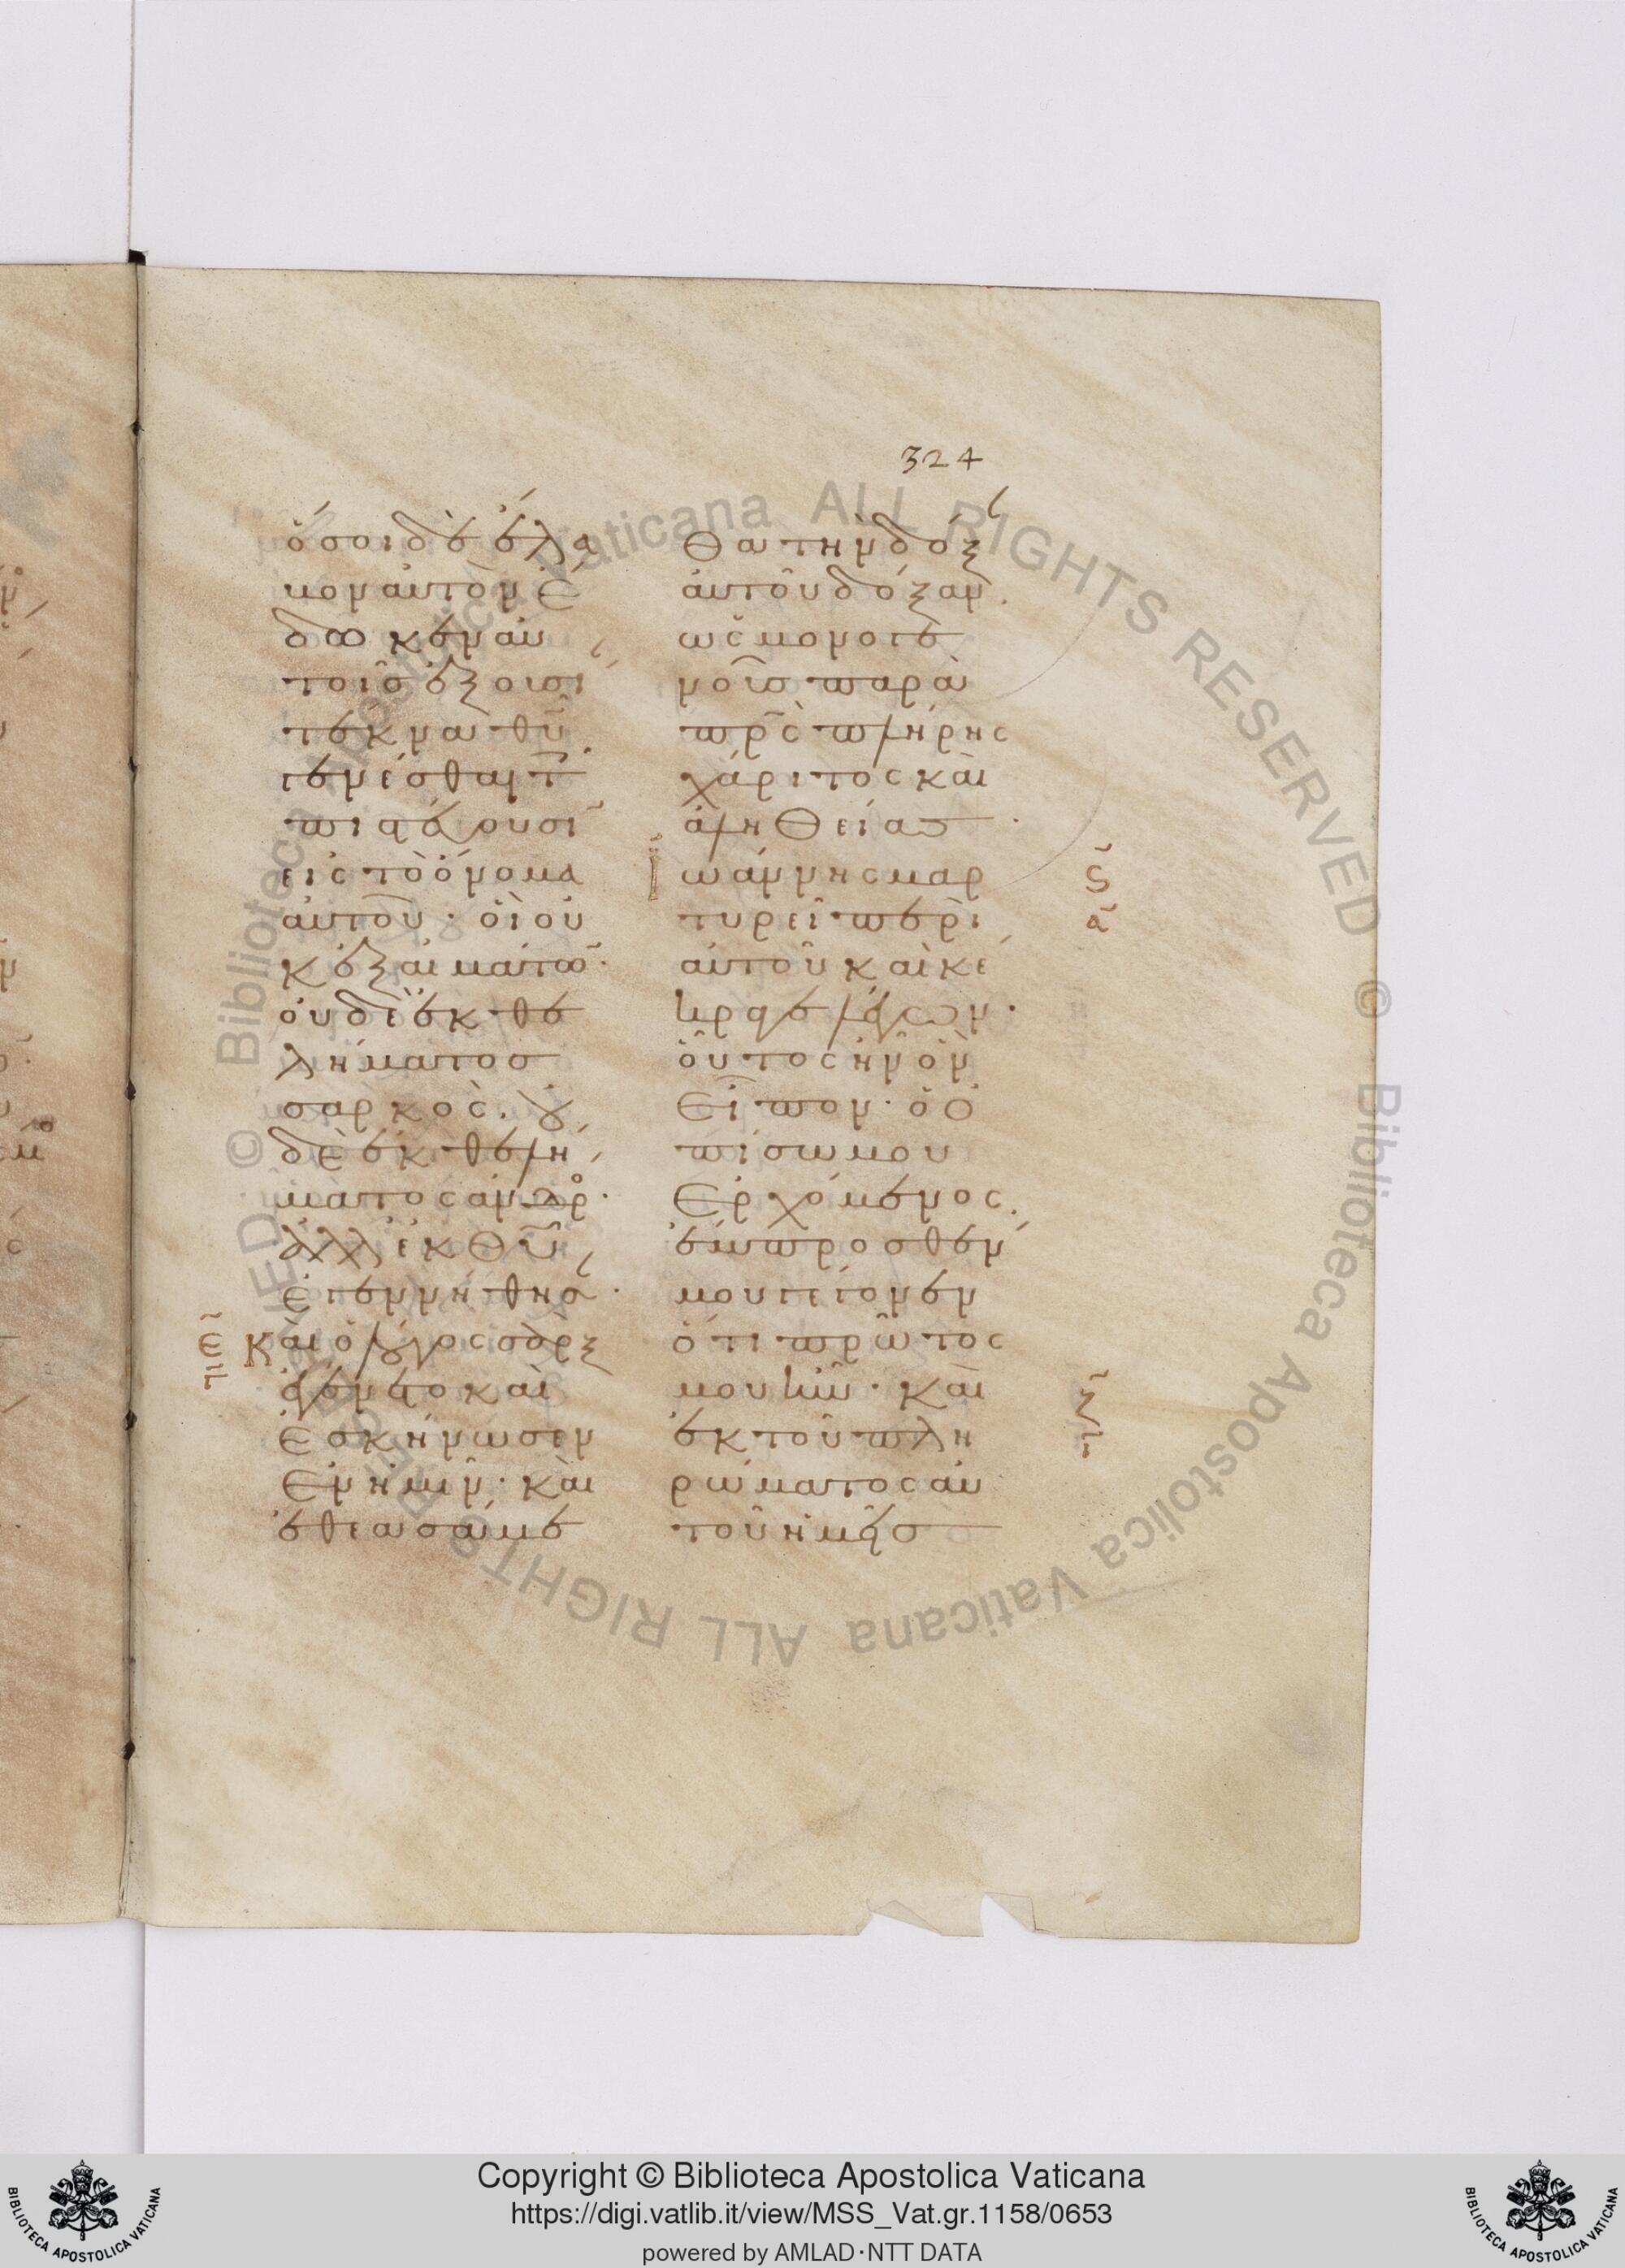 324
ὅσοι δὲ ἔλα
βον αὐτὸν ἔ
δωκεν αὐ
τοῖς ἐξουσί
τέκνα θῦ
γενέσθαι τ
πιστεύουσῖ
εἰς τὸ ὄνομα
αὐτοῦ· οἳ οὐ
κ ἐξ αἱμάτω̄·
οὐδὲ ἐκ θε
λήματος
σαρκὸς· οὐ
δὲ ἐκ θελή
ματος ἀνδρ·
ἀλλ' ἐκ Θῦ
ἐγεννήθησ·
Καὶ ὁ λόγος σὰρξ
ἐγένετο καὶ
ἐσκήνωσεν
ἐν ἡμῖν· καὶ
ἐθεασάμε
θα τὴν δόξ
αὐτοῦ δόξαν·
ὡς μονογε
νοῦς παρὰ
πρς̄ πλήρης
χάριτος καὶ
ἀληθείας·
Ἰωάννης μαρ
τυρεῖ περὶ
αὐτοῦ καὶ κέ
κραγε λέγων·
οὗτος ἦν ὃν
εἶπον· ὁ ὀ
πίσω μου
ἐρχόμενος·
ἔμπροσθέν
μου γέγονεν
ὅτι πρῶτός
μου ἦν· καὶ
ἐκ τοῦ πλη
ρώματος αὐ
τοῦ ἡμεῖς
Ε
Γ
Ϛ
Α
Ζ
Γ
Copyright © Biblioteca Apostolica Vaticana
https://digi.vatlib.it/view/MSS_Vat.gr.1158/0653
powered by AMLAD·NTT DATA
BIBLIOTECA APOSTOLICA VATICANA
BIBLIOTECA APOSTOLICA VATICANA
© Biblioteca Apostolica Vaticana ALL RIGHTS RESERVED © Biblioteca Apostolica Vaticana ALL RIGHTS RESERVED